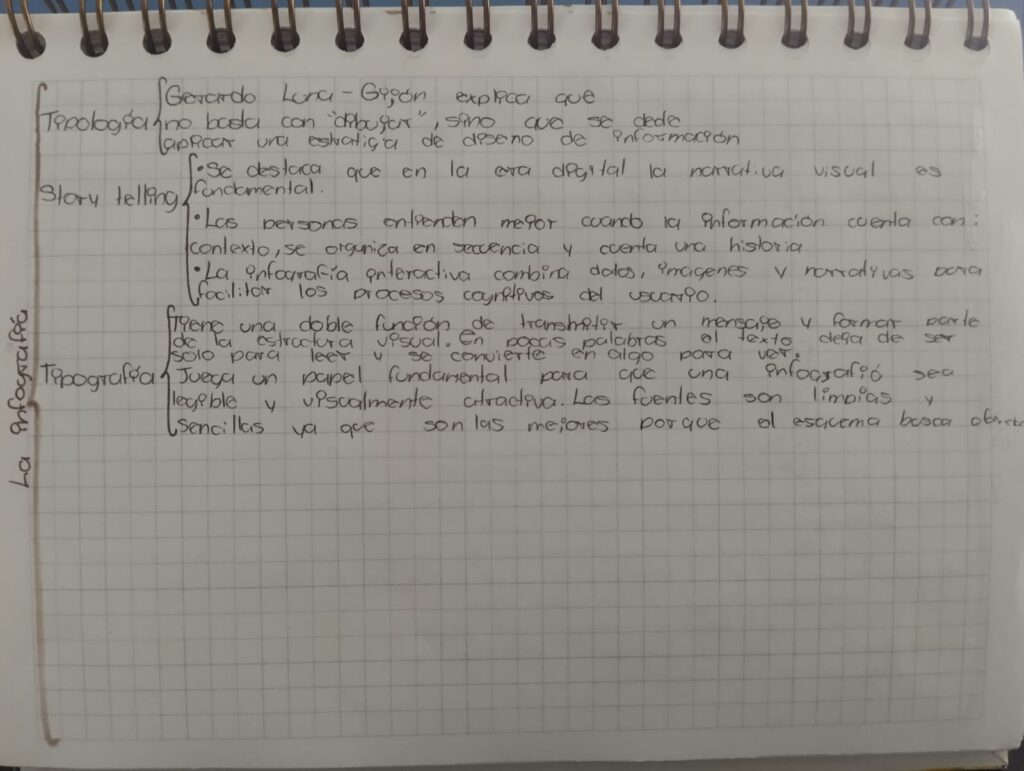 La infografía
Tipología
Gerardo Luna-Gijón explica que
no basta con "dibujar", sino que se dede
aplicar una estratigia de diseño de información
Story telling
•Se destaca que en la era digital la narrativa visual es
fundamental.
•Las personas entienden mejor cuando la información cuenta con:
contexto, se organiza en secuencia y cuenta una historia
•La infografía interactiva combina datos, imagenes y narrativas para
facilitar los procesos cognitivos del usuario.
Tipografía
Tiene una doble función de transmitir un mensaje y formar parte
de la estructura visual. En pocas palabras el texto deja de ser
solo para leer y se convierte en algo para ver.
Juega un papel fundamental para que una infografía sea
legible y visualmente atractiva. Las fuentes son limpias y
sencillas ya que son las mejores porque el esquema busca